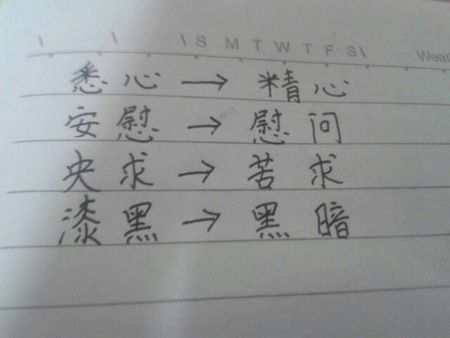 S M T W T F S
悉心→精心
安慰→慰问
央求→苦求
漆黑→黑暗